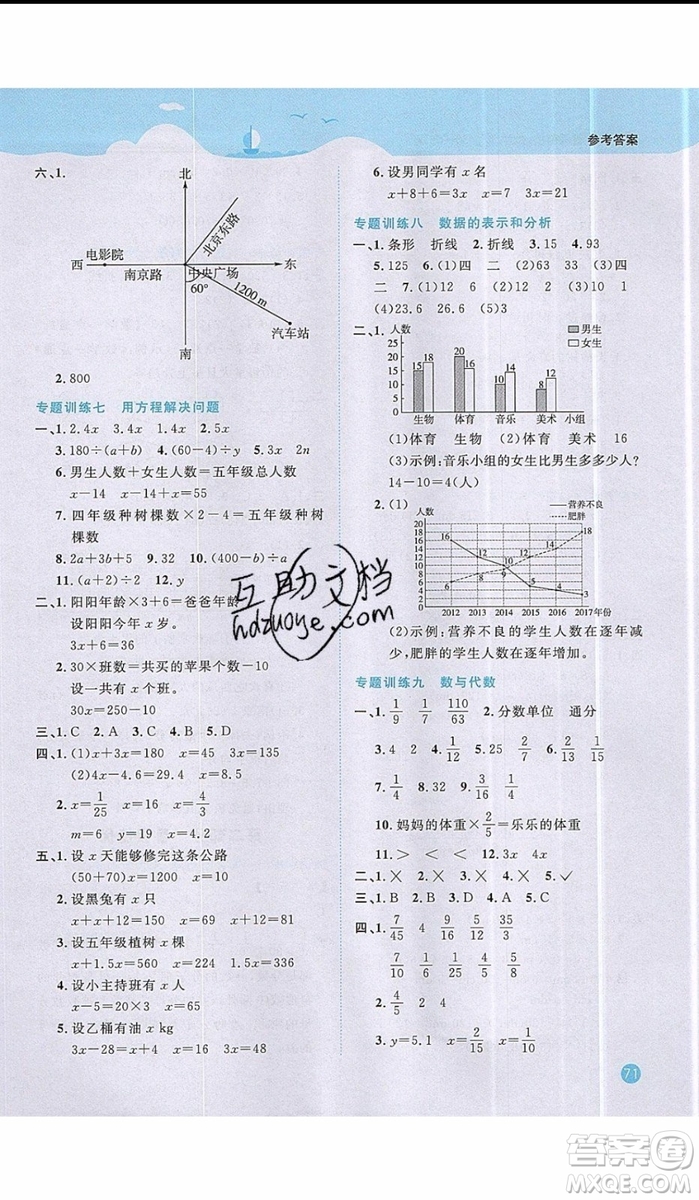 参考答案
六、1.
北
北京东路
电影院
西
南京路
中央广场
东
60°
1200 m
汽车站
南
2.800
专题训练七 用方程解决问题
一、1.2.4x 3.4x 1.4x 2.5x
3.180÷(a+b) 4.(60-4)÷x 5.3x 2n
6.男生人数+女生人数=五年级总人数
x-14 x-14+x=55
7.四年级种树棵数×2-4=五年级种树
棵数
8.2a+3b+5 9.32 10.(400-b)÷a
11.(a+2)÷2 12.y
二、1.阳阳年龄×3+6=爸爸年龄
设阳阳今年x岁。
3x+6=36
2.30×班数=共买的苹果个数-10
设一共有x个班。
30x=250-10
三、1.C 2.A 3.D 4.B 5.D
四、1.(1)x+3x=180 x=45 3x=135
(2)4x=24.8 x=6.2
2.x=1/25 x=16 x=4/3
m=6 y=19 x=4.2
五、1.设x天能够修完这条公路
(50+70)x=1200 x=10
2.设黑兔有x只
x+x+12=30 x=9
3.设五年级植树x棵
x+1.5x=150 x=60 1.5x=90
4.设小主持班有x人
x-5=20×3 x=65
5.设乙桶有油x kg
3x-28=x+4 x=16 3x=48
6.设男同学有x名
x+8+6=3x x=7 3x=21
专题训练八 数据的表示和分析
一、1.条形 折线 2.折线 3.15 4.93
5.125 6.(1)四 二 (2)63 (3)四
二 7.(1)16 (2)33 (3)10 1
(4)23.2 26.6 (5)3
二、1.人数
男生
女生
25
20
15
10
5
0
15 18 20 16 10 14 8 12
生物 体育 音乐 美术 小组
(1)体育 生物 (2)体育 美术 16
(3)示例:音乐小组的女生比男生多多少人?
14-10=4(人)
2.(1)
人数
营养不良
肥胖
16 12 10 18
2012 2013 2014 2015 2016 2017年份
(2)示例:营养不良的学生人数在逐年减
少,肥胖的学生人数在逐年增加。
专题训练九 数与代数
一、1.1/9 1/7 110/63 2.分数单位 通分
3.4 2 4.1/12 5.25 6.2/7 2/3 1/15
7.1/4 8.32 9.3/16 1/2
10.妈妈的体重×2/5=乐乐的体重
11.> < < 12.3x 4x
二、1.× 2.× 3.× 4.× 5.✓
三、1.B 2.D 3.A 4.C 5.B
四、1.7/45 4 9/14 2/9 5/9
7/10 1/6 2/21 6/5
2.4/5 2 4
3.y=5.1 x=4/9 x=1/2
71
互助文档
hdzuoye.com
答案圈
MXQE.COM